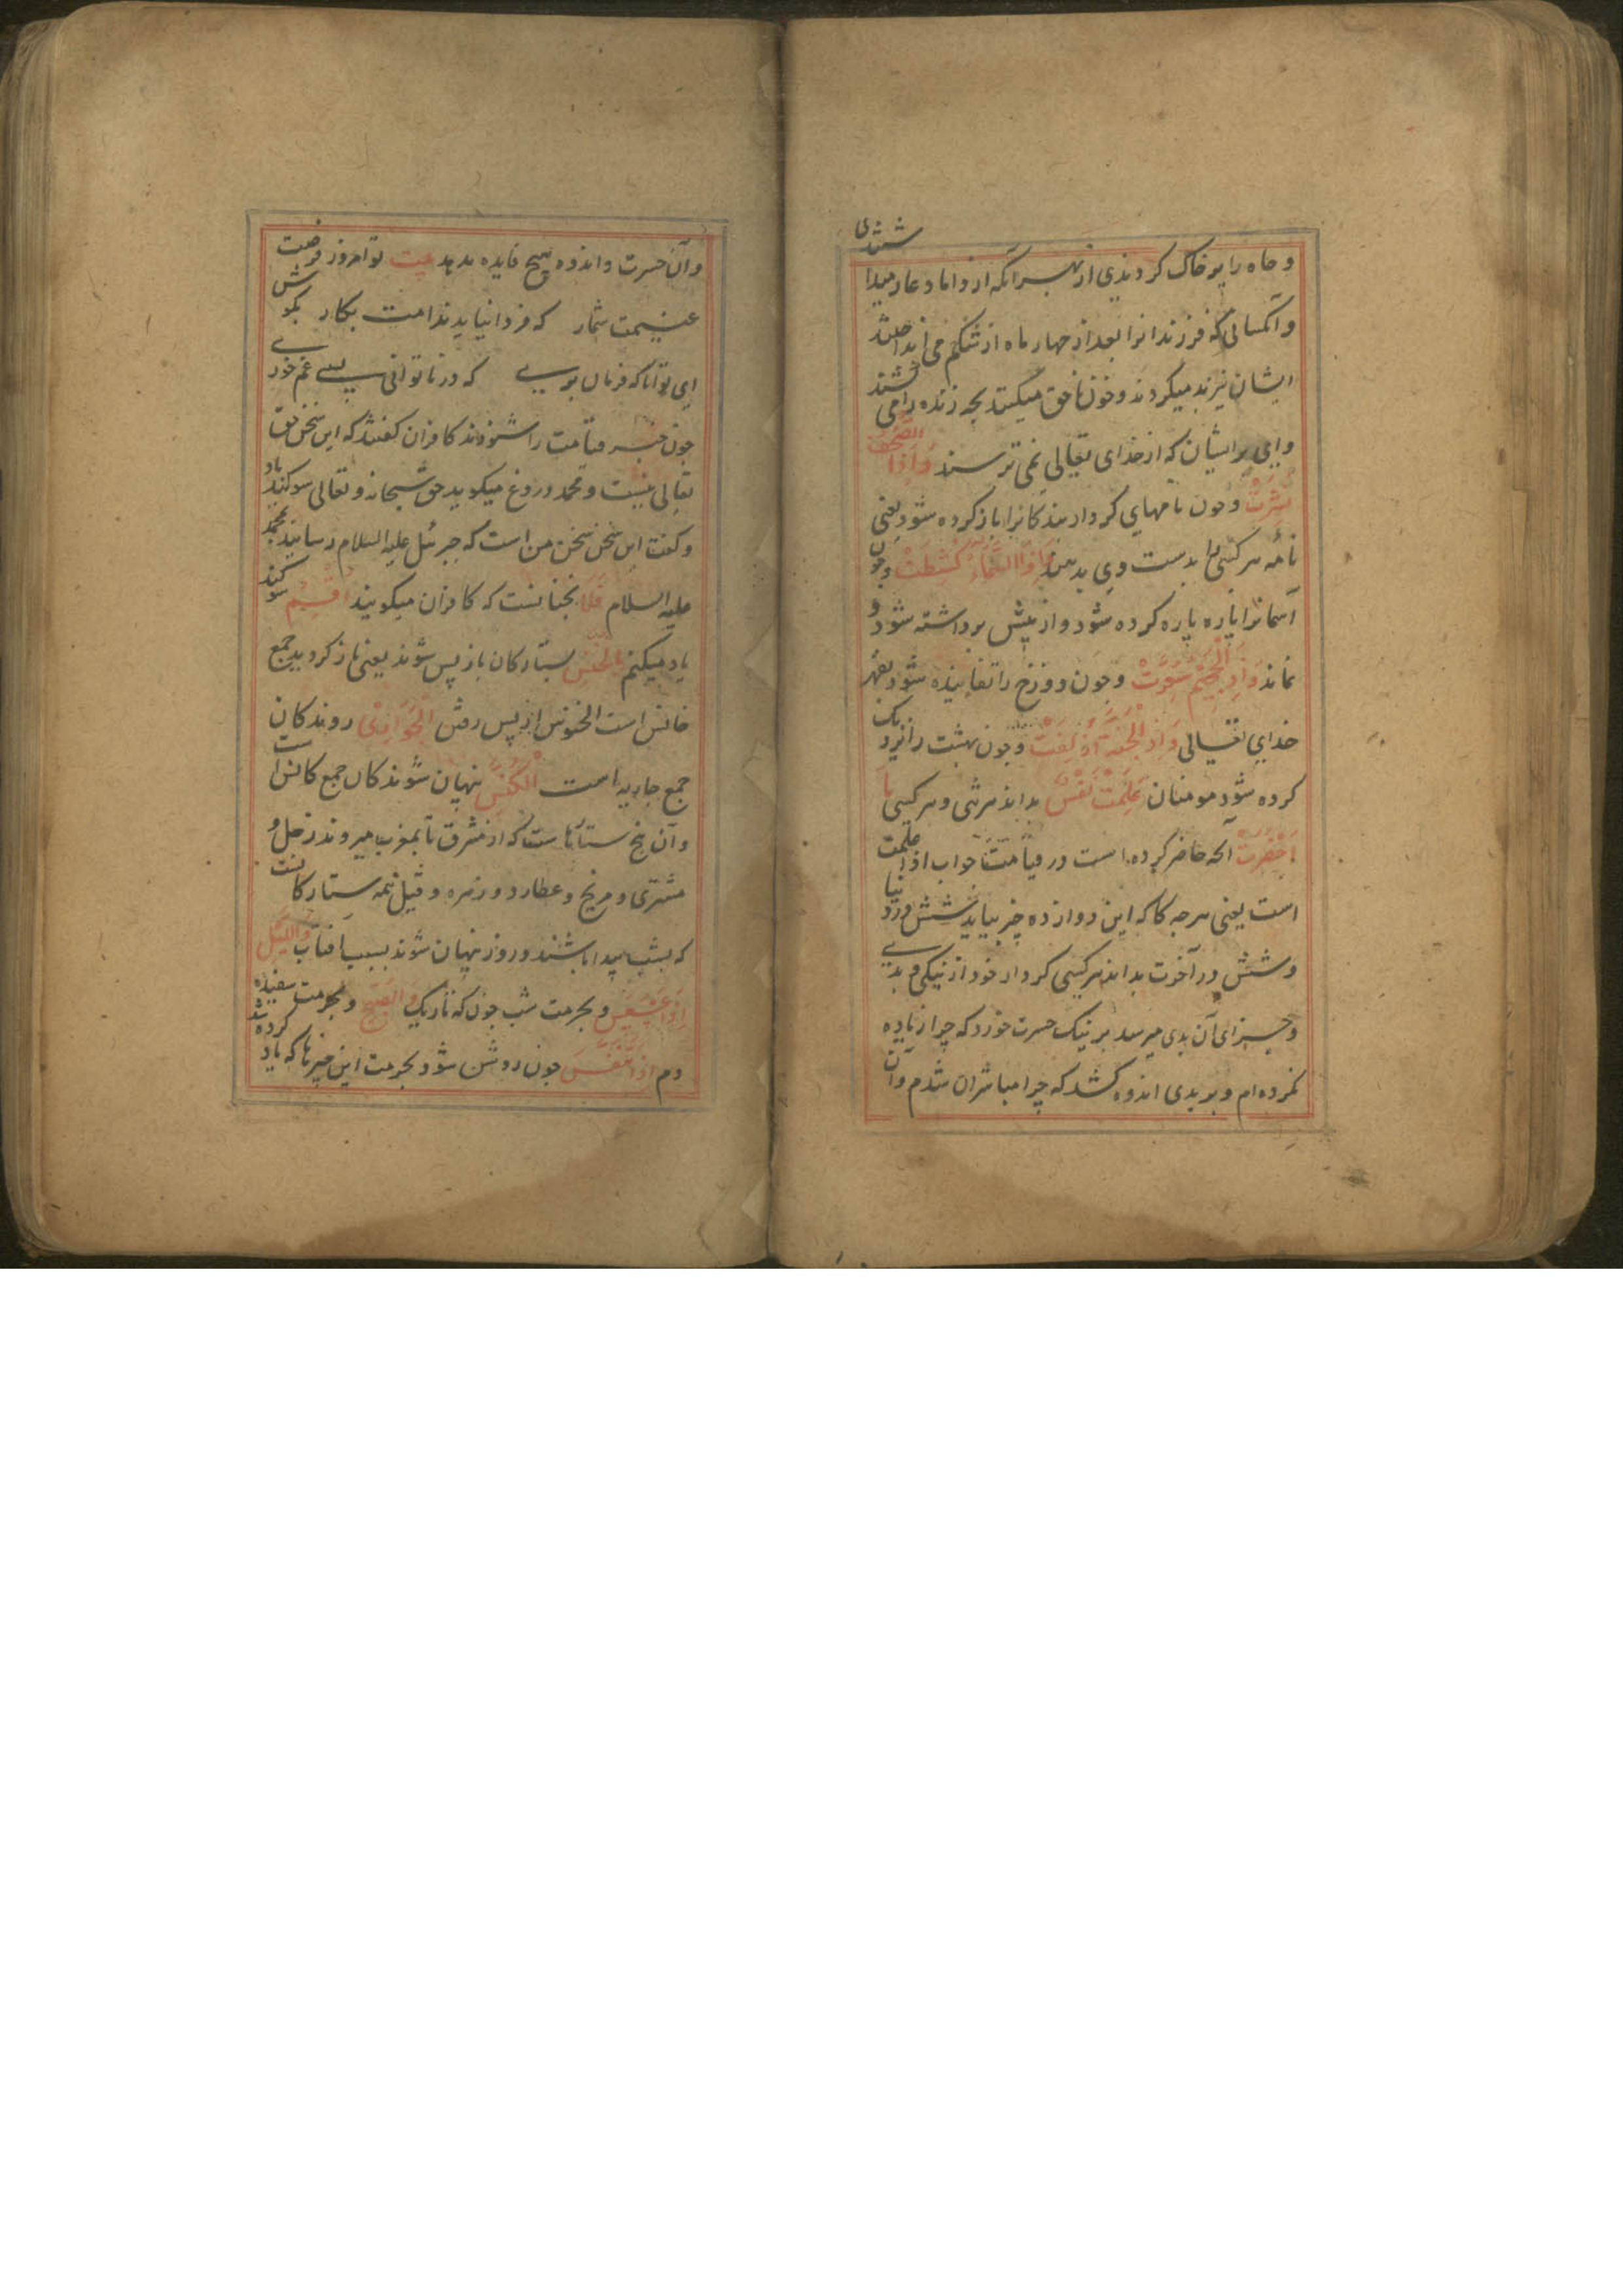 و چاه را پر خاک کردندی از بهر آنکه از داماد عار میدا
شتندی
و آنکسانی که فرزندانرا بعد از چهار ماه از شکم می انداختند
ایشان نیز بد میکردند و خون ناحق میکنند بچه زنده را می کشتند
وای بر ایشان که از خدای تعالی نمی ترسند وَاِذَا الصُّحُفُ
نُشِرَتْ و چون نامهای کردار بندکانرا باز کرده شود یعنی
نامه هر کسی را بدست وی بدهند وَاِذَا السَّمَاءُ كُشِطَتْ و چون
آسمانرا پاره پاره کرده شود و از پیش برداشته شود و
نماند وَاِذَ الْجَحِیْمُ سُعِّرَتْ و چون دوزخ را تفانیده شود بقهر
خدای تعالی وَاِذَ الْجَنَّةُ اُزْلِفَتْ و چون بهشت را نزدیک
کرده شود مومنان عَلِمَتْ نَفْسٌ بداند هر تنی و هر کسی مَا
اَحْضَرَتْ آنچه حاضر کرده است در قیامت جواب اذا علمت
است یعنی هر چه کاکه این دوازده چیز بیاید شش در دنیا
و شش در آخرت بداند هر کسی کردار خود از نیکی و بدیی
و جزای آن بدی میرسد بر نیک حسرت خورد که چرا زیاده
نکرده ام و بر بدی اندوه کشد که چرا مباشر ان شدم و آن
و آن حسرت و اندوه هیچ فایده ندهد بیت تو امروز فرصت
غنیمت شمار که فردا نیاید ندامت بکار بکوش
ای توانا که فرمان بریی که در ناتوانی بسی غم خوریی
چون خبر قیامت را شنودند کافران گفتند که این سخن حق
تعالی نیست و محمد دروغ میکوید حق سبحانه و تعالی سوکند یاد
و گفت این سخن سخن من است که جبرئیل علیه السلام رسانید بمحمد
علیه السلام فَلَا نچنانست که کافران میکویند اُقْسِمُ سوکند
یاد میکنم بِالْخُنَّسِ بستارکان باز پس شوند یعنی باز کردید جمع
خانس است الخنوس از پس رفتن الْجَوَارِیْ روندکان
جمع جاریه است الْکُنَّسِ پنهان شوندکان جمع کانس است
و آن پنج ستاره است که از مشرق تا بمغرب میروند زحل و
مشتری و مریخ و عطارد و زهره و قیل همه ستارکانست
که بشب پیدا باشند و روز پنهان شوند بسبب آفتاب وَاللَّیْلِ
اِذَا عَسْعَسَ و بحرمت شب چون که تاریک وَالصُّبْحِ و بحرمت سفیده
دم اِذَا تَنَفَّسَ چون روشن شود بحرمت این چیزها که یاد کرده شد